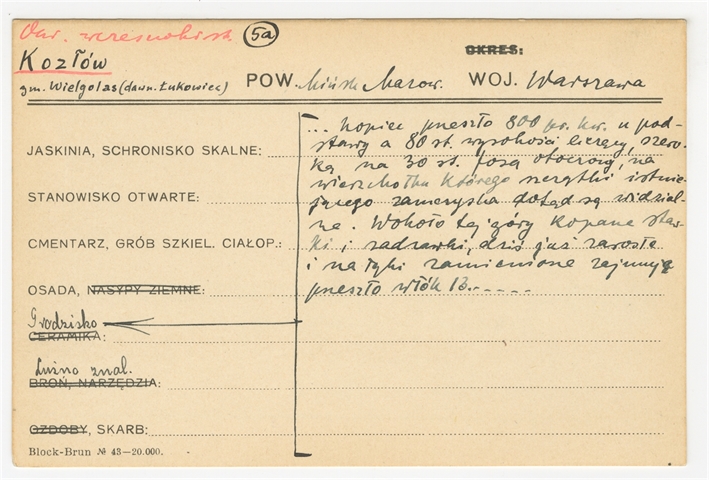 Okr. wczesnohist. 5a
Kozłów
gm. Wielgolas (dawn. Łukowiec) POW. Mińsk Mazow. WOJ. Warszawa
OKRES:
... kopiec przeszło 800 kw. u pod-
stawy a 80 st. wysokości liczący, szero-
JASKINIA, SCHRONISKO SKALNE:
ką na 30 st. fosą otoczony, na
wierzchołku którego szczątki istnie-
STANOWISKO OTWARTE:
jącego zameczyska dotąd są widzial-
ne. Wokoło tej góry kopane staw-
CMENTARZ, GRÓB SZKIEL. CIAŁOP.:
ki i sadzawki, dziś już zarosłe
i na łąki zamienione zajmują
OSADA, NASYPY ZIEMNE:
przeszło włók 13.....
Grodzisko
CERAMIKA:
Luźno znal.
BROŃ, NARZĘDZIA:
OZDOBY, SKARB:
Block-Brun № 43—20.000.